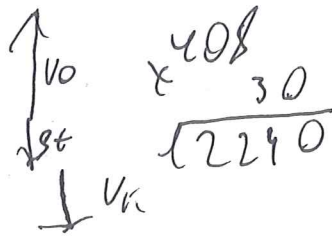 V0
gt
Vк
× 408
30
12240